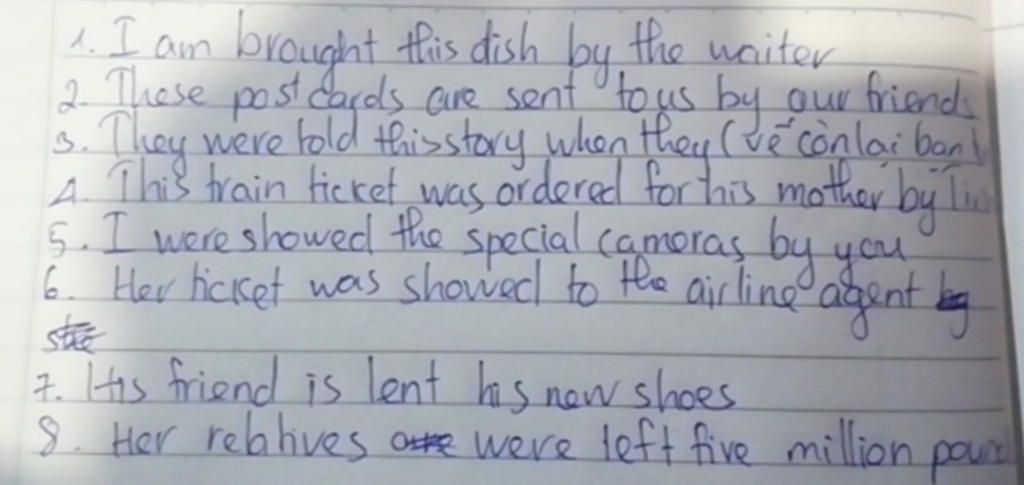 1. I am brought this dish by the waiter
2. These postcards are sent to us by our friends
3. They were told this story when they (vế còn lại
4. This train ticket was ordered for his mother by
5. I were showed the special cameras by you
6. Her ticket was showed to the airline agent
7. His friend is lent his new shoes
8. Her relatives were left five million